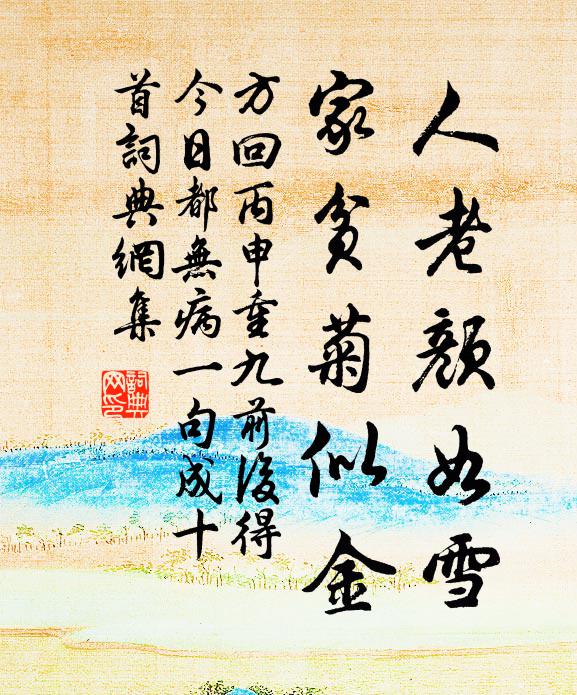 人老顏如雪
家貧菊似金
方回丙申重九前後得
今日都無病一句成十
首詞典網集
詞典
网印